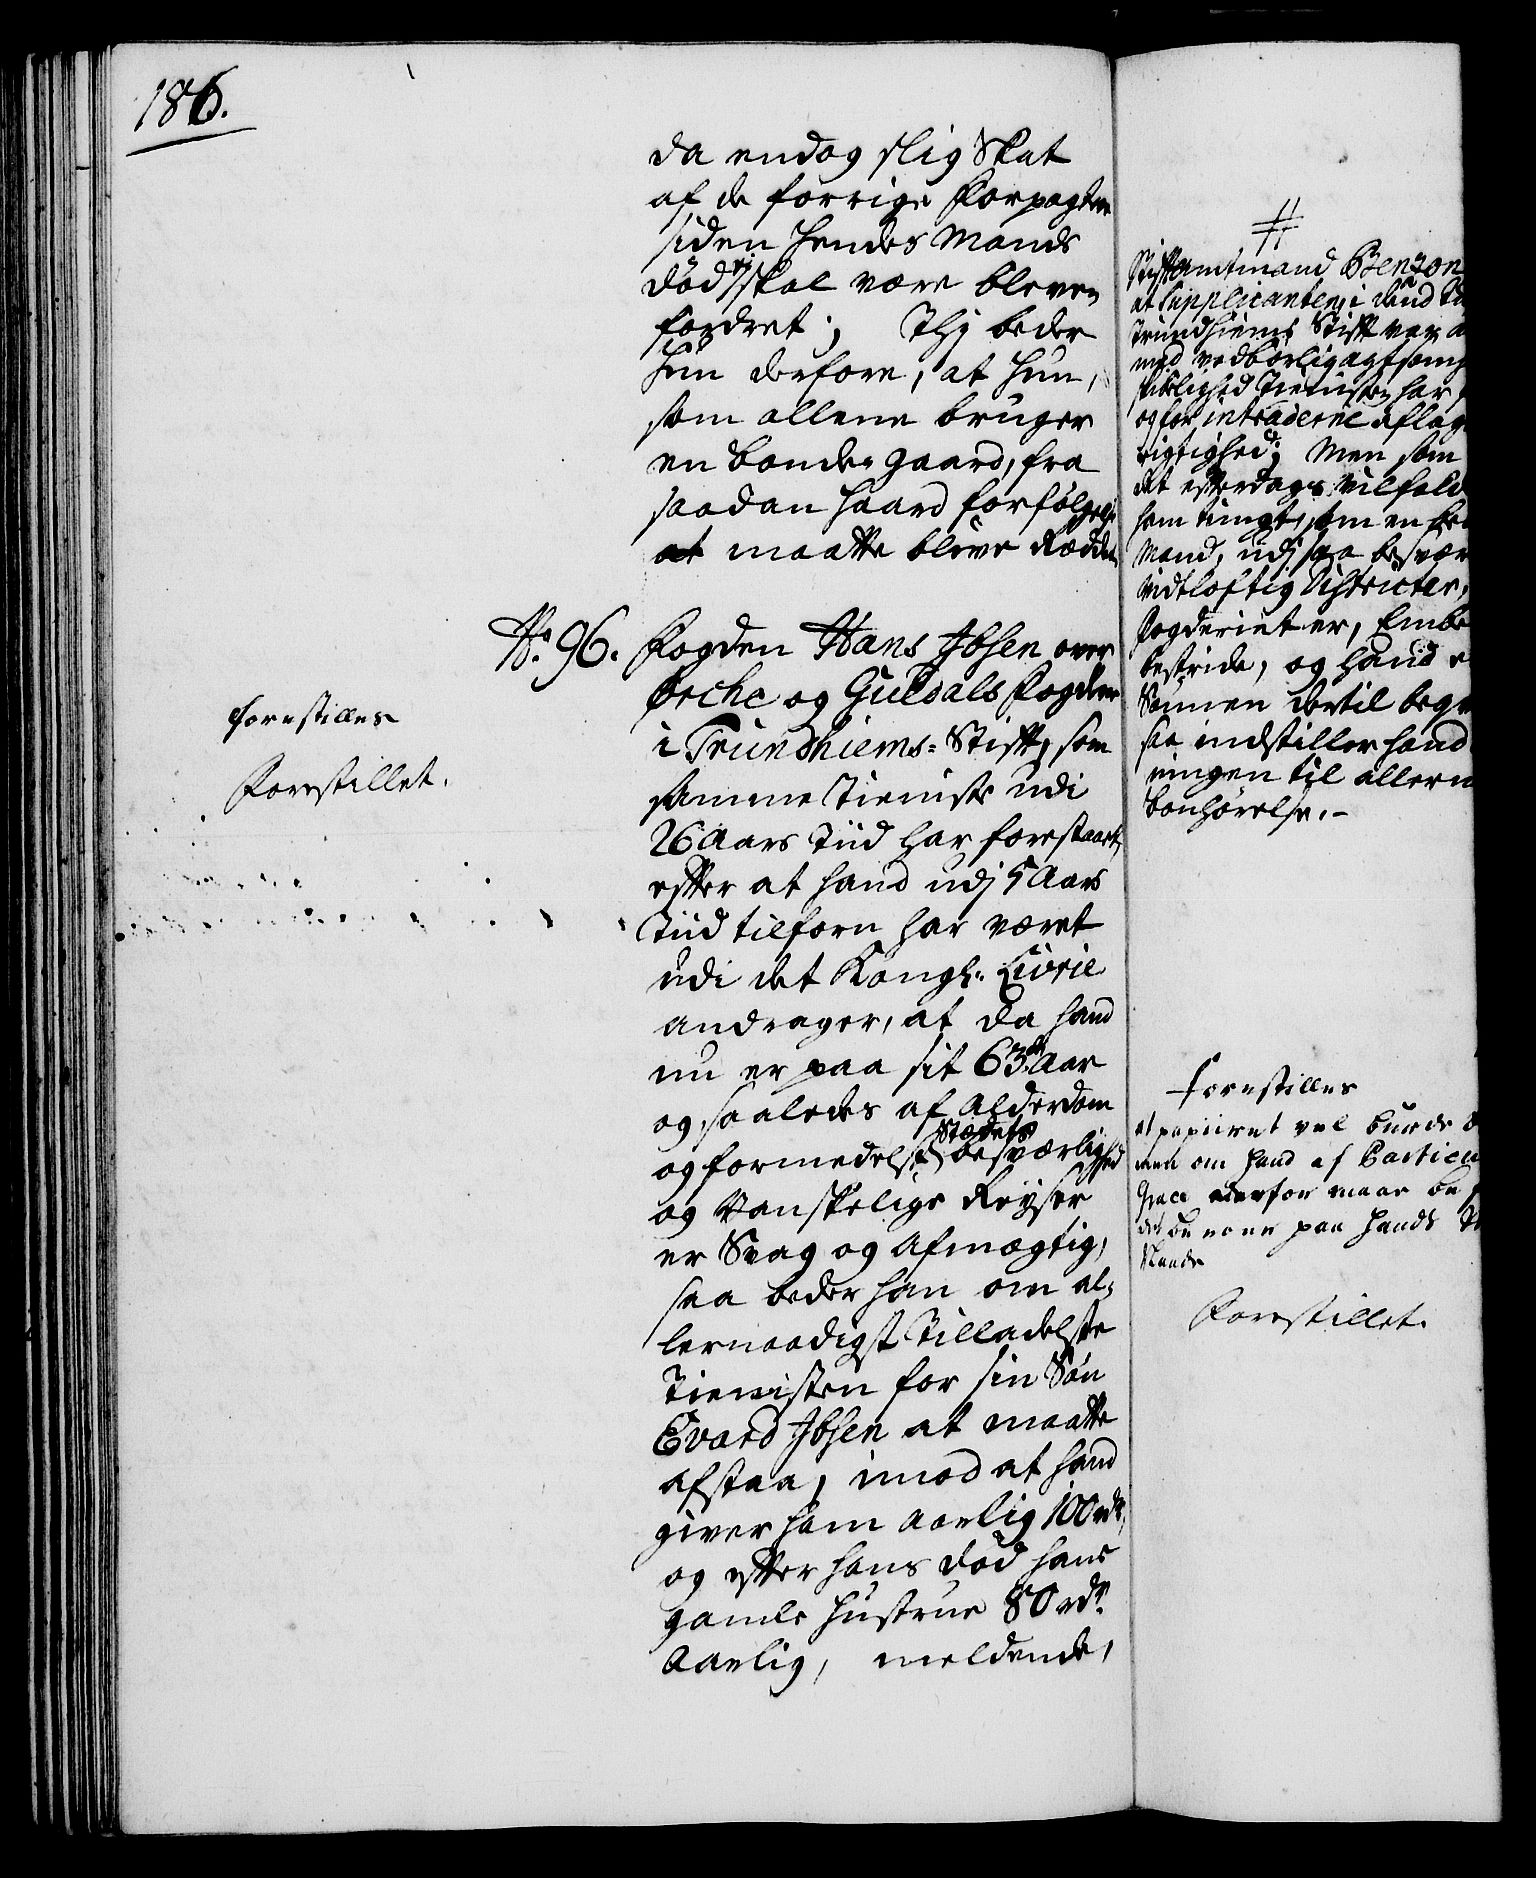 186.
da endog slig Skat
af de forrige Forpagtere
siden hendes Mands
død ej skal være bleven
fordret; Thj beder
hun derfore, at hun,
som allene bruger
en bonde gaard, fra
saadan haard forfølgelse
at maatte blive Rædded
No. 96. Fogden Hans Ibsen over
Orche og Guldals Fogderie
i Trundhiems-Stift, som
samme Tieniste udi
26 Aars Tiid har forestaaet,
efter at hand udj 5 Aars
Tiid tilforn har været
udi det Kongl. Livrie
andrager, at da hand
nu er paa sit 63de Aar
og saaledes af Alderdom
og formedelst Stædets besværlighed
og Vanskelige Reyser
er Svag og Afmægtig,
saa beder han om al-
lernaadigst Tilladelse
Tienisten for sin Søn
Evard Ibsen at maatte
afstaa, imod at hand
giver ham aarlig 100 rdr,
og efter hans død hans
gamle Hustrue 80 rdr.
Aarlig, meldende,
Forestilles
Forestillet.
#
Stiftamtmand Benzon
at Supplicanten, i dend
Trundhiems Stift var
med vedbørlig agtsomh
skikelighed Tienisten har
og for intraderne aflag
rigtighed; Men som
det efterdags vil fald
ham tungt, som en
Mand, udj saa besvær
vidtløftig Districter,
Fogderiet er, Embe
bestride, og hand
Sønnen dertil beqv
saa indstiller hand
ningen til allern
bønhørelse.-
Forestilles
at papiiret vel burde
men om hand af Particu
Grace derfor maar be
det beroer paa hands
Naade
Forestillet.